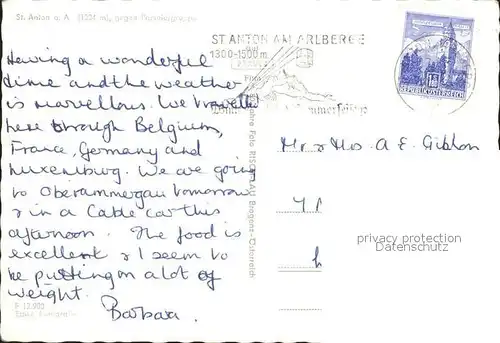 St. Anton a. A. (1304 m), gegen
ST ANTON AM ARLBERG
1300-1500 m
REPUBLIK ÖSTERREICH
Having a wonderful
time and the weather
is marvellous. We travelled
here through Belgium,
France, Germany and
Luxemburg. We are going
to Oberammergau tomorrow
& in a Cable car this
afternoon. The food is
excellent & I seem to
be putting on a lot of
weight.
Barbara.
Mr & Mrs. A E. Gibbon
privacy protection
Datenschutz
Foto RISCH-LAU Bregenz-Österreich